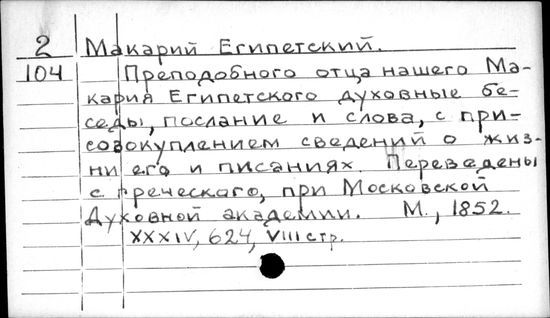 2 Макарий Египетский.
104 Преподобного отца нашего Ма-
кария Египетского духовные бе-
седы, послание и слова, с при-
совокуплением сведений о жиз-
ни его и писаниях. Переведены
с греческого, при Московской
Духовной академии. М., 1852.
XXXIV, 624, VIII стр.